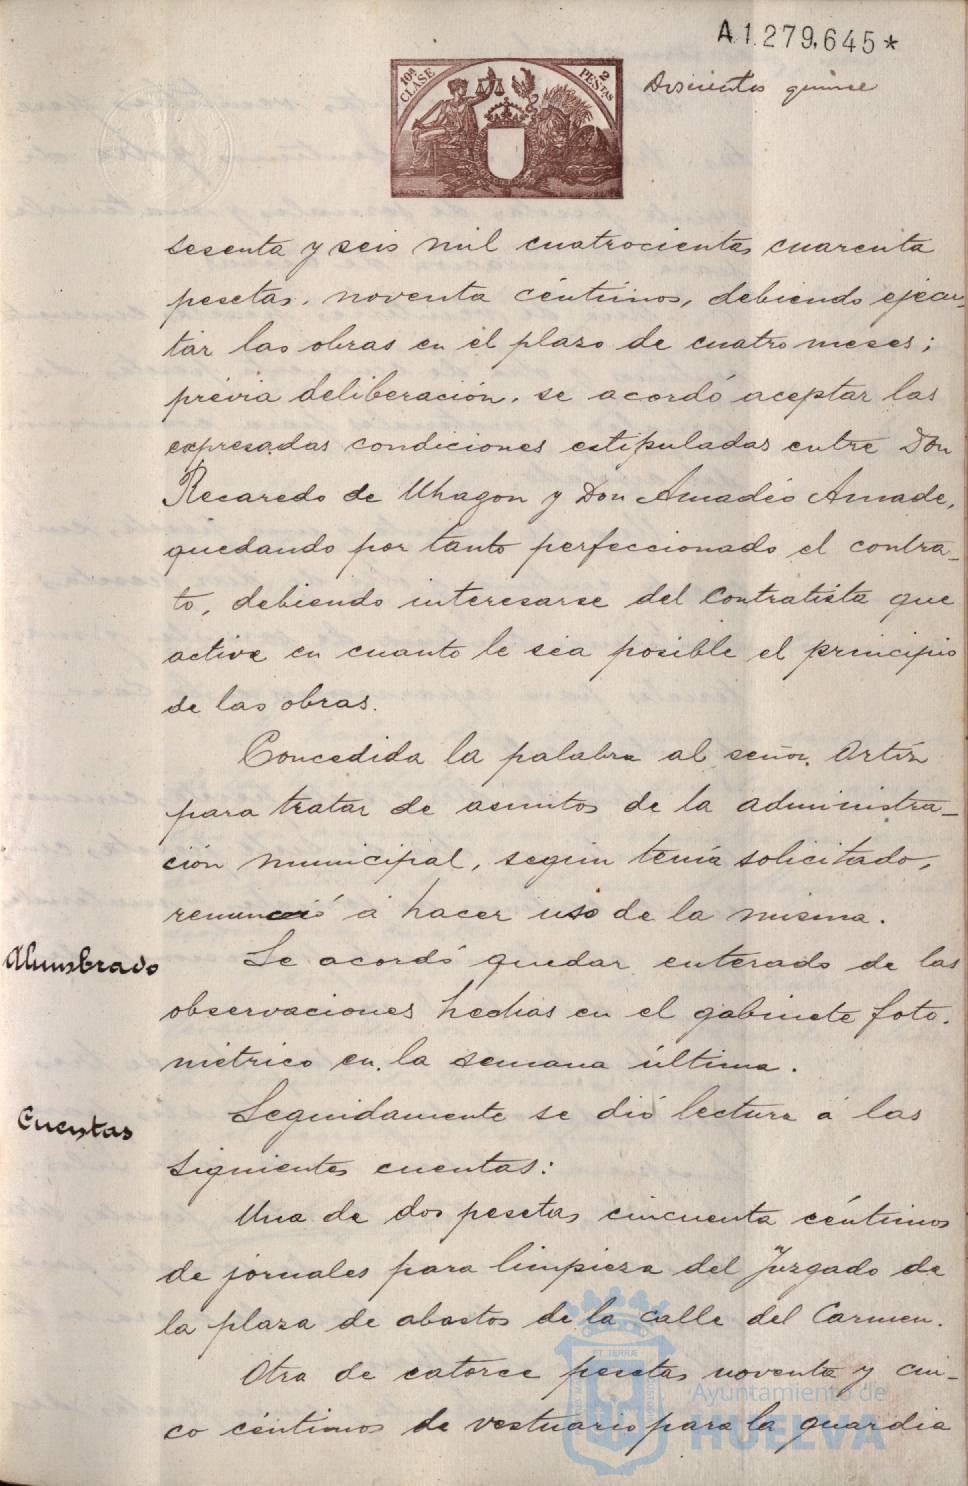 A1.279.645*
10ª CLASE
2 PESTAS
Doscientos quince
sesenta y seis mil cuatrocientas cuarenta
pesetas, noventa céntimos, debiendo ejecu-
tar las obras en el plazo de cuatro meses;
prévia deliberación, se acordó aceptar las
expresadas condiciones estipuladas entre Don
Recaredo de Uhagon y Don Amadeo Amade,
quedando por tanto perfeccionado el contra-
to, debiendo interesarse del contratista que
active en cuanto le sea posible el principio
de las obras.
Concedida la palabra al señor Ortíz
para tratar de asuntos de la administra-
ción municipal, según tenía solicitado,
renunció á hacer uso de la misma.
Alumbrado
Se acordó quedar enterado de las
observaciones hechas en el gabinete foto-
métrico en la semana última.
Cuentas
Seguidamente se dió lectura á las
siguientes cuentas:
Una de dos pesetas cincuenta céntimos
de jornales para limpieza del Juzgado de
la plaza de abastos de la calle del Carmen.
Otra de catorce pesetas noventa y cin-
co céntimos de vestuario para la guardia
Ayuntamiento de
HUELVA